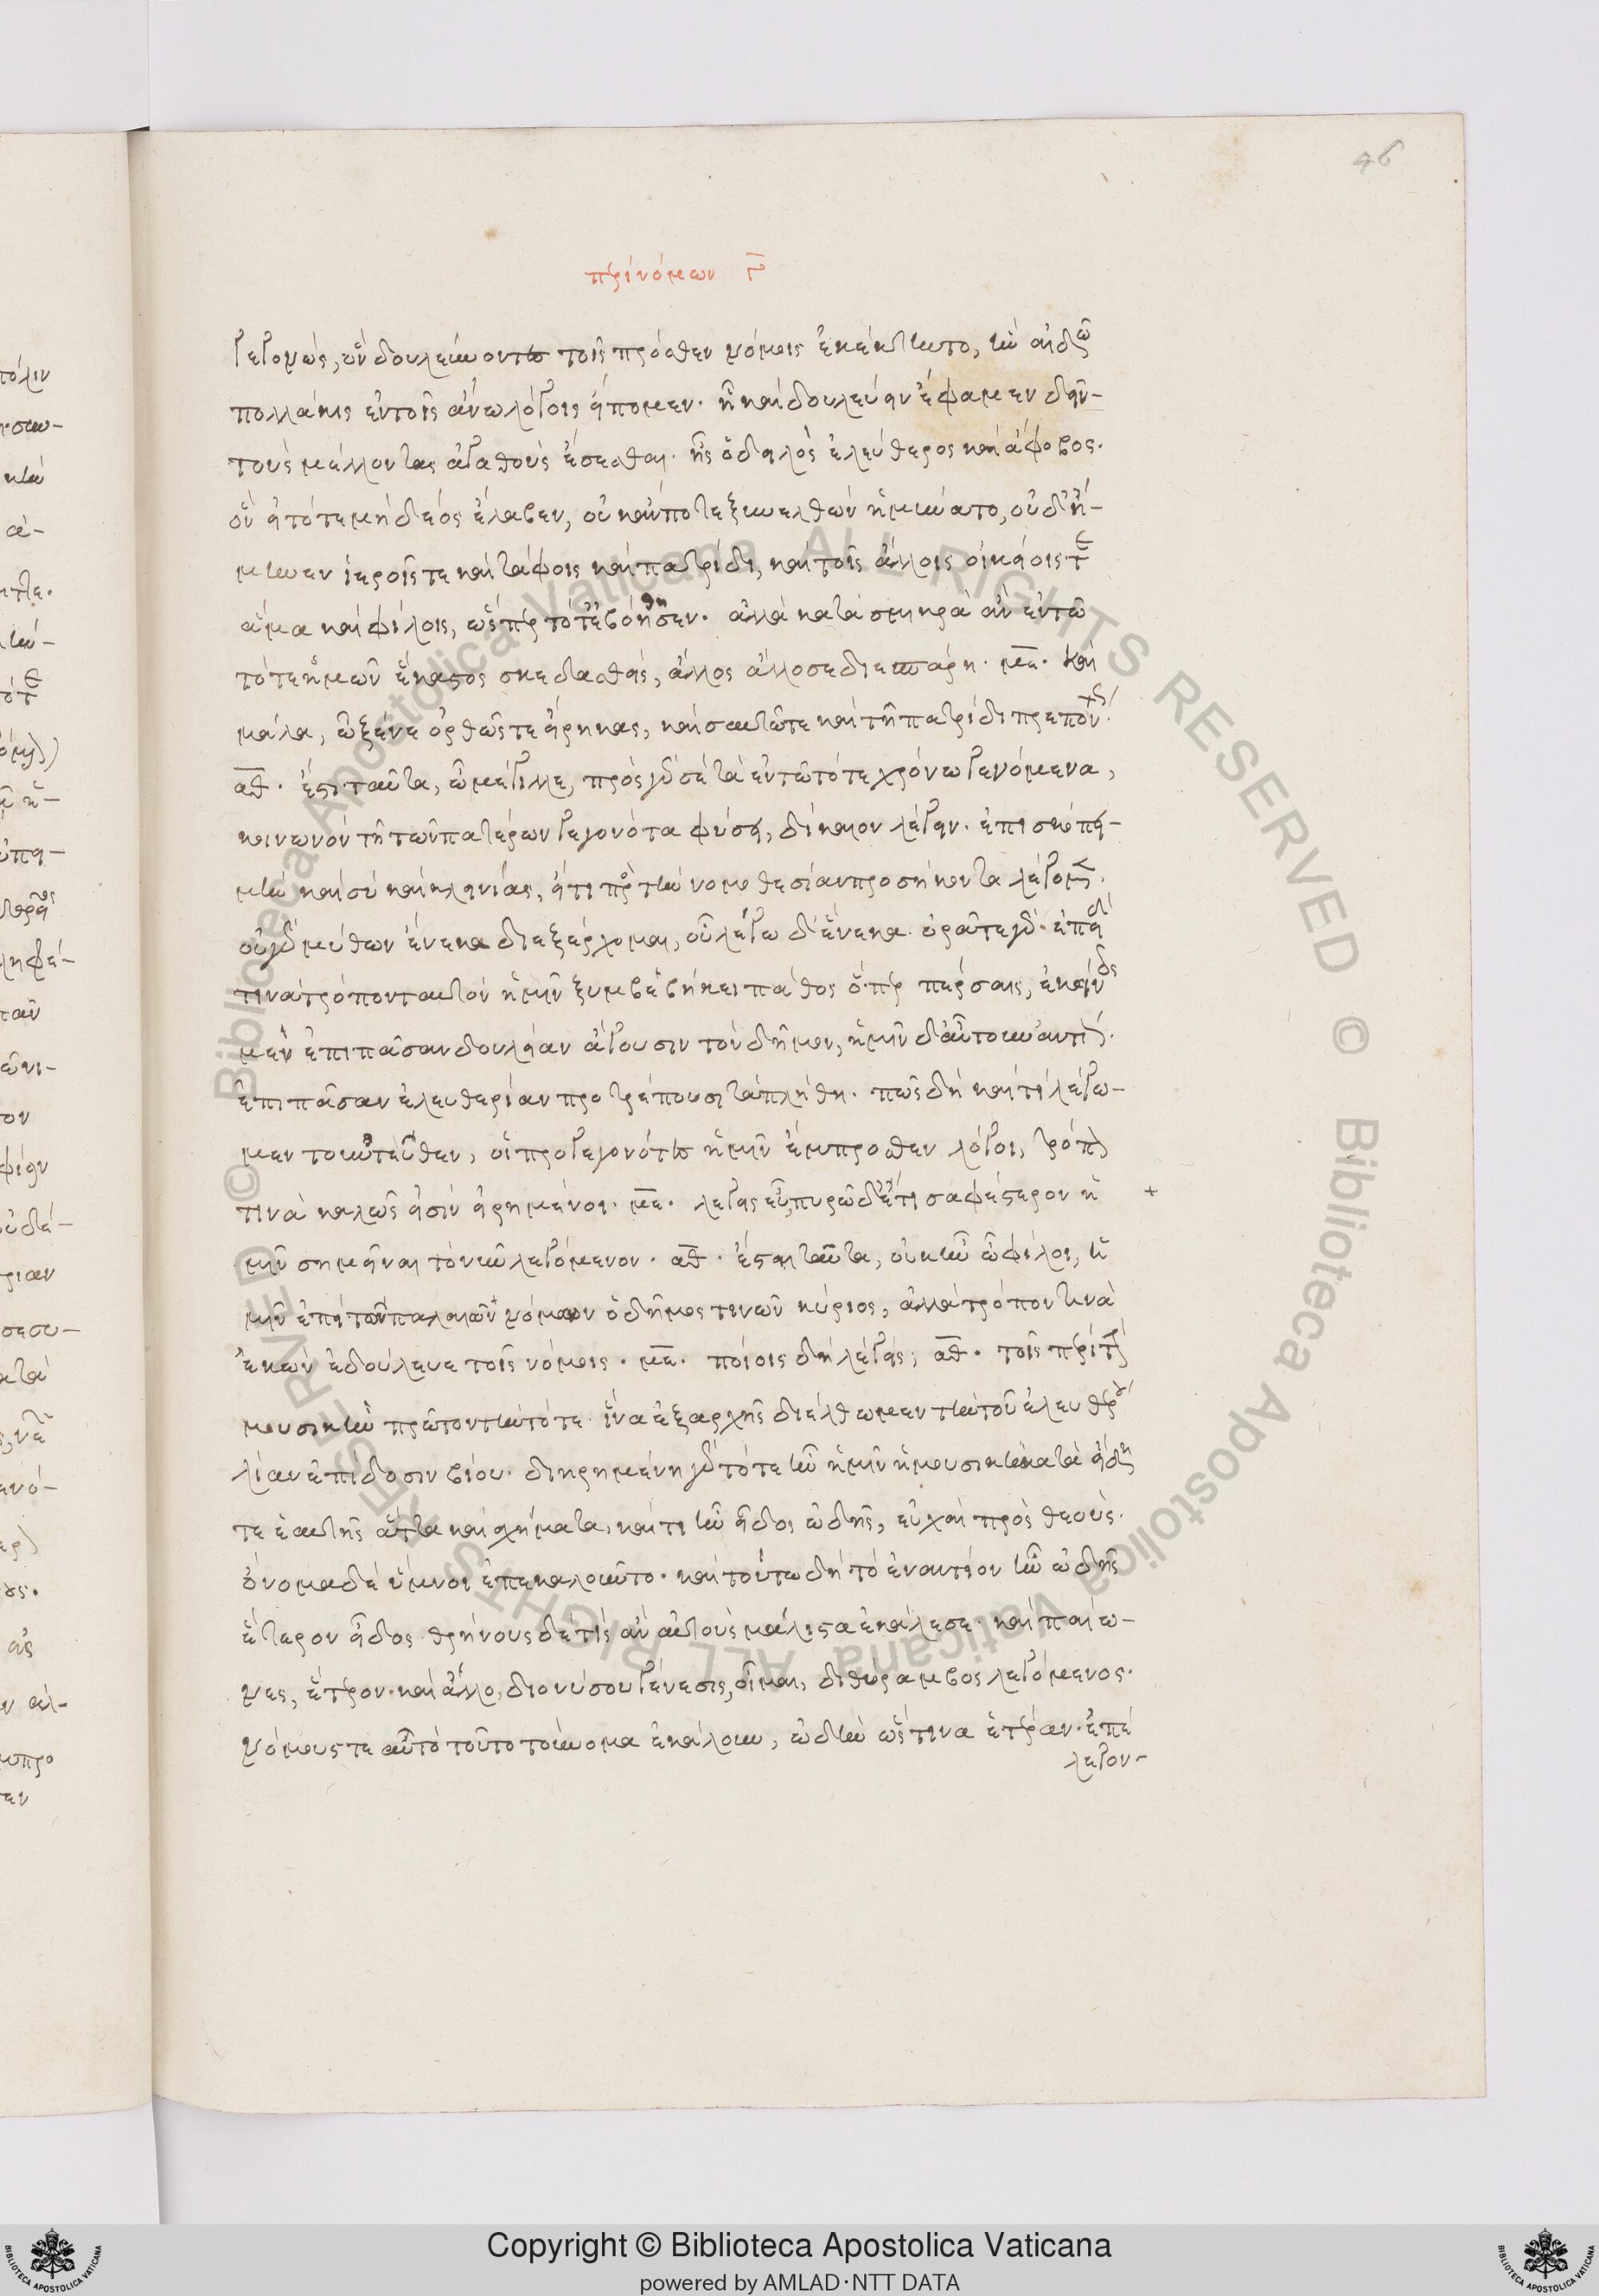 46
περὶ νόμων γ̅
γεγονώς, ὃν δουλεύοντες τοῖς πρόσθεν νόμοις ἐκέκτηντο, ἣν αἰδῶ
πολλάκις ἐν τοῖς ἄνω λόγοις εἴπομεν. ᾗ καὶ δουλεύειν ἔφαμεν δεῖν
τοὺς μέλλοντας ἀγαθοὺς ἔσεσθαι. ἧς ὁ δειλὸς ἐλεύθερος καὶ ἄφοβος.
ὃν εἰ τότε μὴ δέος ἔλαβεν, οὐκ ἄν ποτε ξυνελθὼν ἠμύνατο, οὐδ' ἤ-
μυνεν ἱεροῖς τε καὶ τάφοις καὶ πατρίδι, καὶ τοῖς ἄλλοις οἰκείοις τε
ἅμα καὶ φίλοις, ὥσπερ τότ' ἐβοήθησεν. ἀλλὰ κατὰ σμικρὰ ἂν ἐν τῷ
τότε ἡμῶν ἕκαστος σκεδασθεὶς, ἄλλος ἄλλοσε διεσπάρη. με. καὶ
μάλα, ὦ ξένε ὀρθῶς τε εἴρηκας, καὶ σαυτῷ τε καὶ τῇ πατρίδι πρεπόντως.
αθ. ἔστι ταῦτα, ὦ μέγιλλε, πρὸς γὰρ σὲ τὰ ἐν τῷ τότε χρόνω γενόμενα,
κοινωνὸν τῇ τῶν πατέρων γεγονότα φύσει, δίκαιον λέγειν. ἐπισκόπει
μὴν καὶ σὺ καὶ κλεινίας, εἴ τι πρὸς τὴν νομοθεσίαν προσήκοντα λέγομεν.
οὐ γὰρ μύθων ἕνεκα διεξέρχομαι, οὗ λέγω δ' ἕνεκα. ὁρᾶτε γάρ. ἐπειδή
τινα τρόπον ταυτὸν ἡμῖν ξυμβεβήκει πάθος ὅπερ πέρσαις, ἐκείνοις
μὲν ἐπὶ πᾶσαν δουλείαν ἄγουσιν τὸν δῆμον, ἡμῖν δ' αὖ τοὐναντίον
ἐπὶ πᾶσαν ἐλευθερίαν προτρέπουσι τὰ πλήθη. πῶς δὴ καὶ τί λέγω-
μεν τοὐντεῦθεν, οἱ προγεγονότες ἡμῖν ἔμπροσθεν λόγοι, τρόπον
τινὰ καλῶς εἰσὶν εἰρημένοι. με. λέγεις εὖ, πειρῶ δ' ἔτι σαφέστερον ἡ-
μῖν σημῆναι τὸ νῦν λεγόμενον. αθ. ἔσται ταῦτα, οὐκ ἦν ὦ φίλοι, ἡ-
μῖν ἐπὶ τῶν παλαιῶν νόμων ὁ δῆμός τινων κύριος, ἀλλὰ τρόπον τινὰ
ἑκὼν ἐδούλευε τοῖς νόμοις. με. ποίοις δὴ λέγεις; αθ. τοῖς περὶ τὴν
μουσικὴν πρῶτον τὴν τότε. ἵνα ἐξ ἀρχῆς διέλθωμεν τὴν τοῦ ἐλευθέρου
λίαν ἐπίδοσιν βίου. διῃρημένη γὰρ τότε ἦν ἡμῖν ἡ μουσικὴ κατὰ εἴδη
τε ἑαυτῆς ἄττα καὶ σχήματα, καί τι ἦν εἶδος ὠδῆς, εὐχαὶ πρὸς θεοὺς.
ὄνομα δὲ ὕμνοι ἐπεκαλοῦντο. καὶ τούτω δὴ τὸ ἐναντίον ἦν ὠδῆς
ἕτερον εἶδος θρήνους δέ τις ἂν αὐτοὺς μάλιστα ἐκάλεσε. καὶ παίω-
νες, ἕτερον. καὶ ἄλλο, διονύσου γένεσις, οἶμαι, διθύραμβος λεγόμενος.
νόμους τε αὐτὸ τοῦτο τοὔνομα ἐκάλουν, ὠδὴν ὥς τινα ἑτέραν. ἐπέ
λεγον